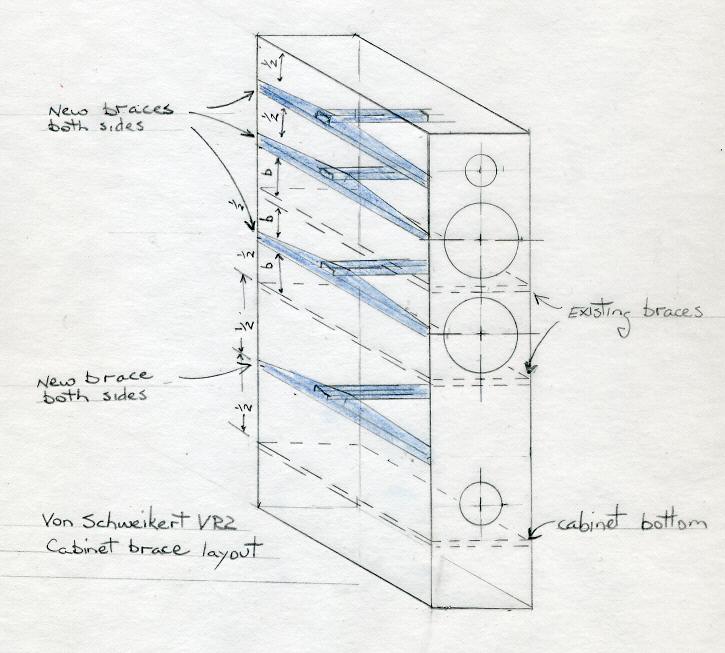 ½
New braces
both sides
½
b
½
b
½
b
Existing braces
½
New brace
both sides
½
Von Schweikert VR2
Cabinet brace layout
cabinet bottom